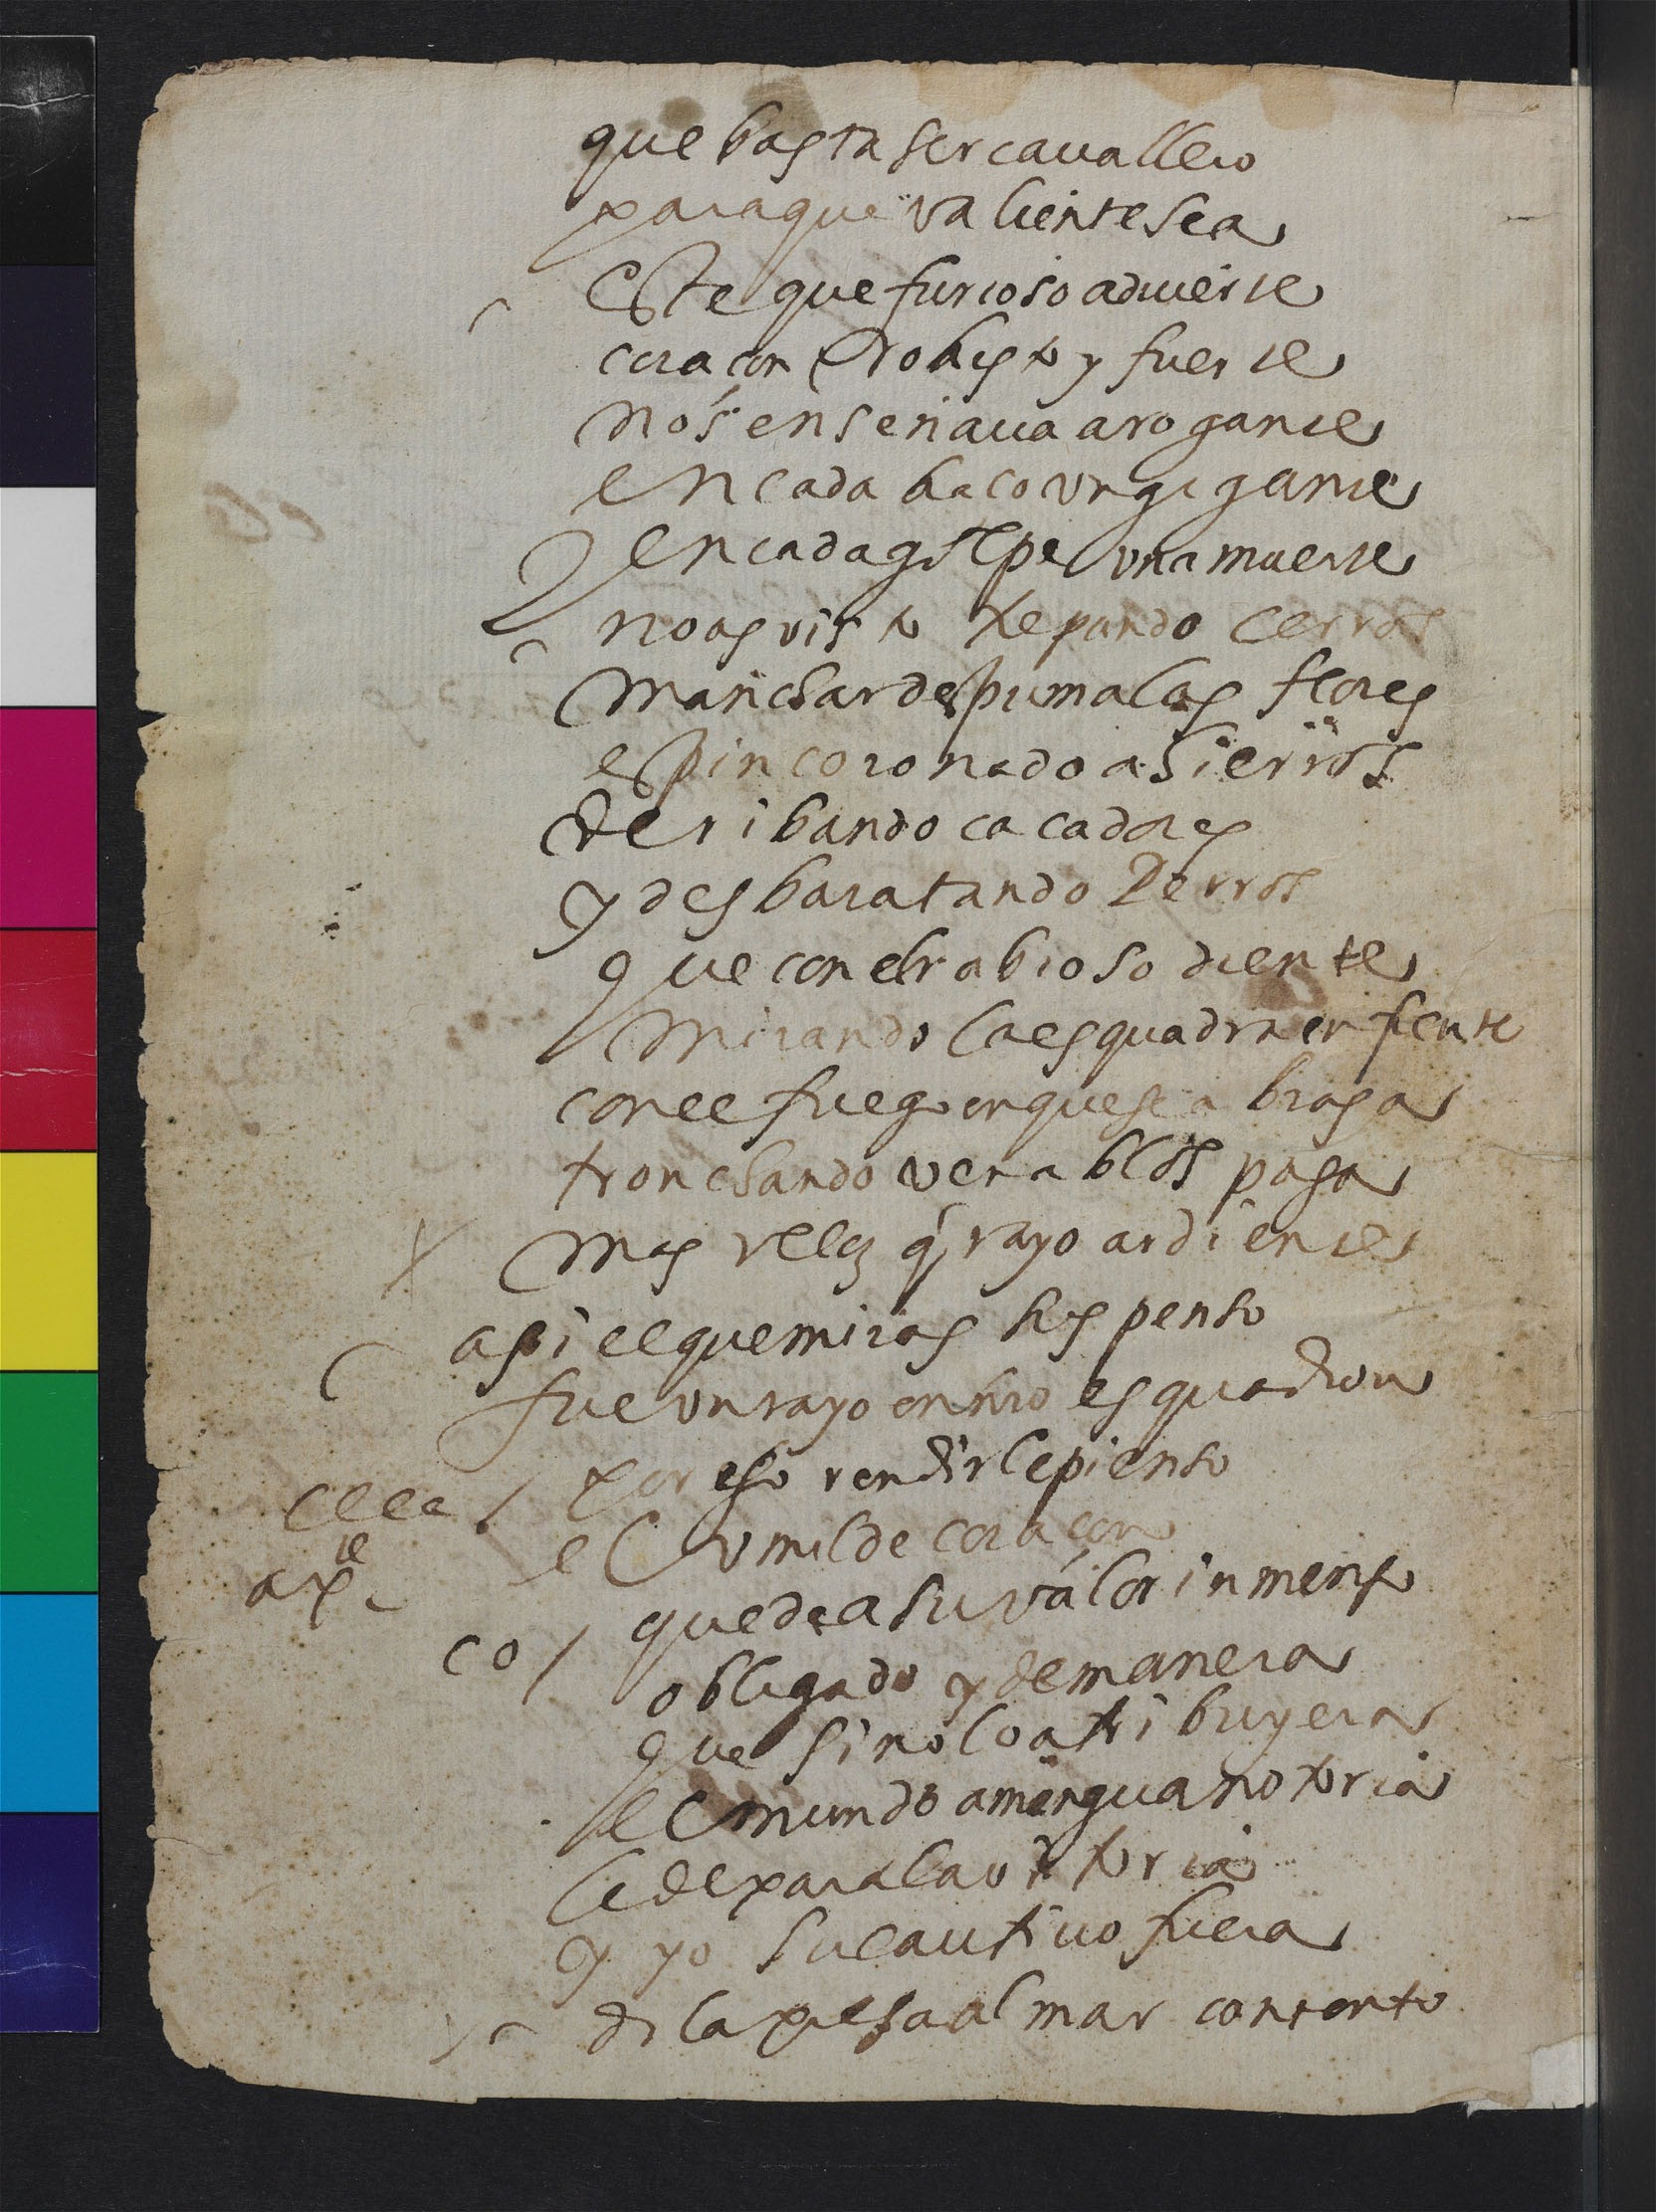 que basta ser cauallero
para que valiente sea
Este que furioso aduierte
coraçon Robusto y fuerte
nos enseñaua arogante
en cada baco vn gigante
en cada golpe vna muerte
no as visto trepando cerros
manchar despuma las flores
espin coronado a hierros
deribando caçadores
y desbaratando Perros
que con el rabioso diente
mirando la esquadra enfrente
con el fuego en que se abrasa
tronchando venablos pasa
mas veloz q̃ rayo ardiente
asi el que miras suspenso
fue vn rayo en nr̃o esquadron
por eso rendirle pienso
ella / el vmilde coraçon
apte
co / quede a su valor inmenso
obligado y de manera
que si no lo atribuyera
el mundo a mengua notoria
le dexara la vitoria
y yo su cautiuo fuera
di la presa al mar contento